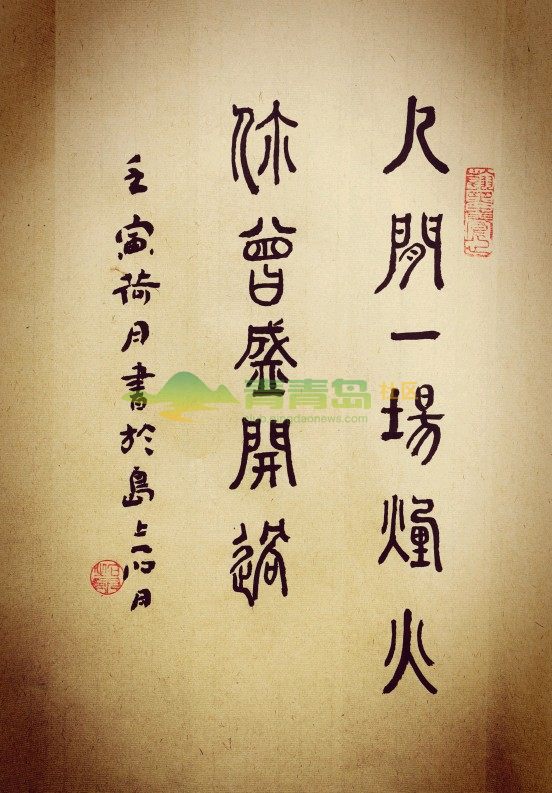 人間一場煙火
你曾盛開過
壬寅荷月書於島上
青青岛社区
qingdaonews.com